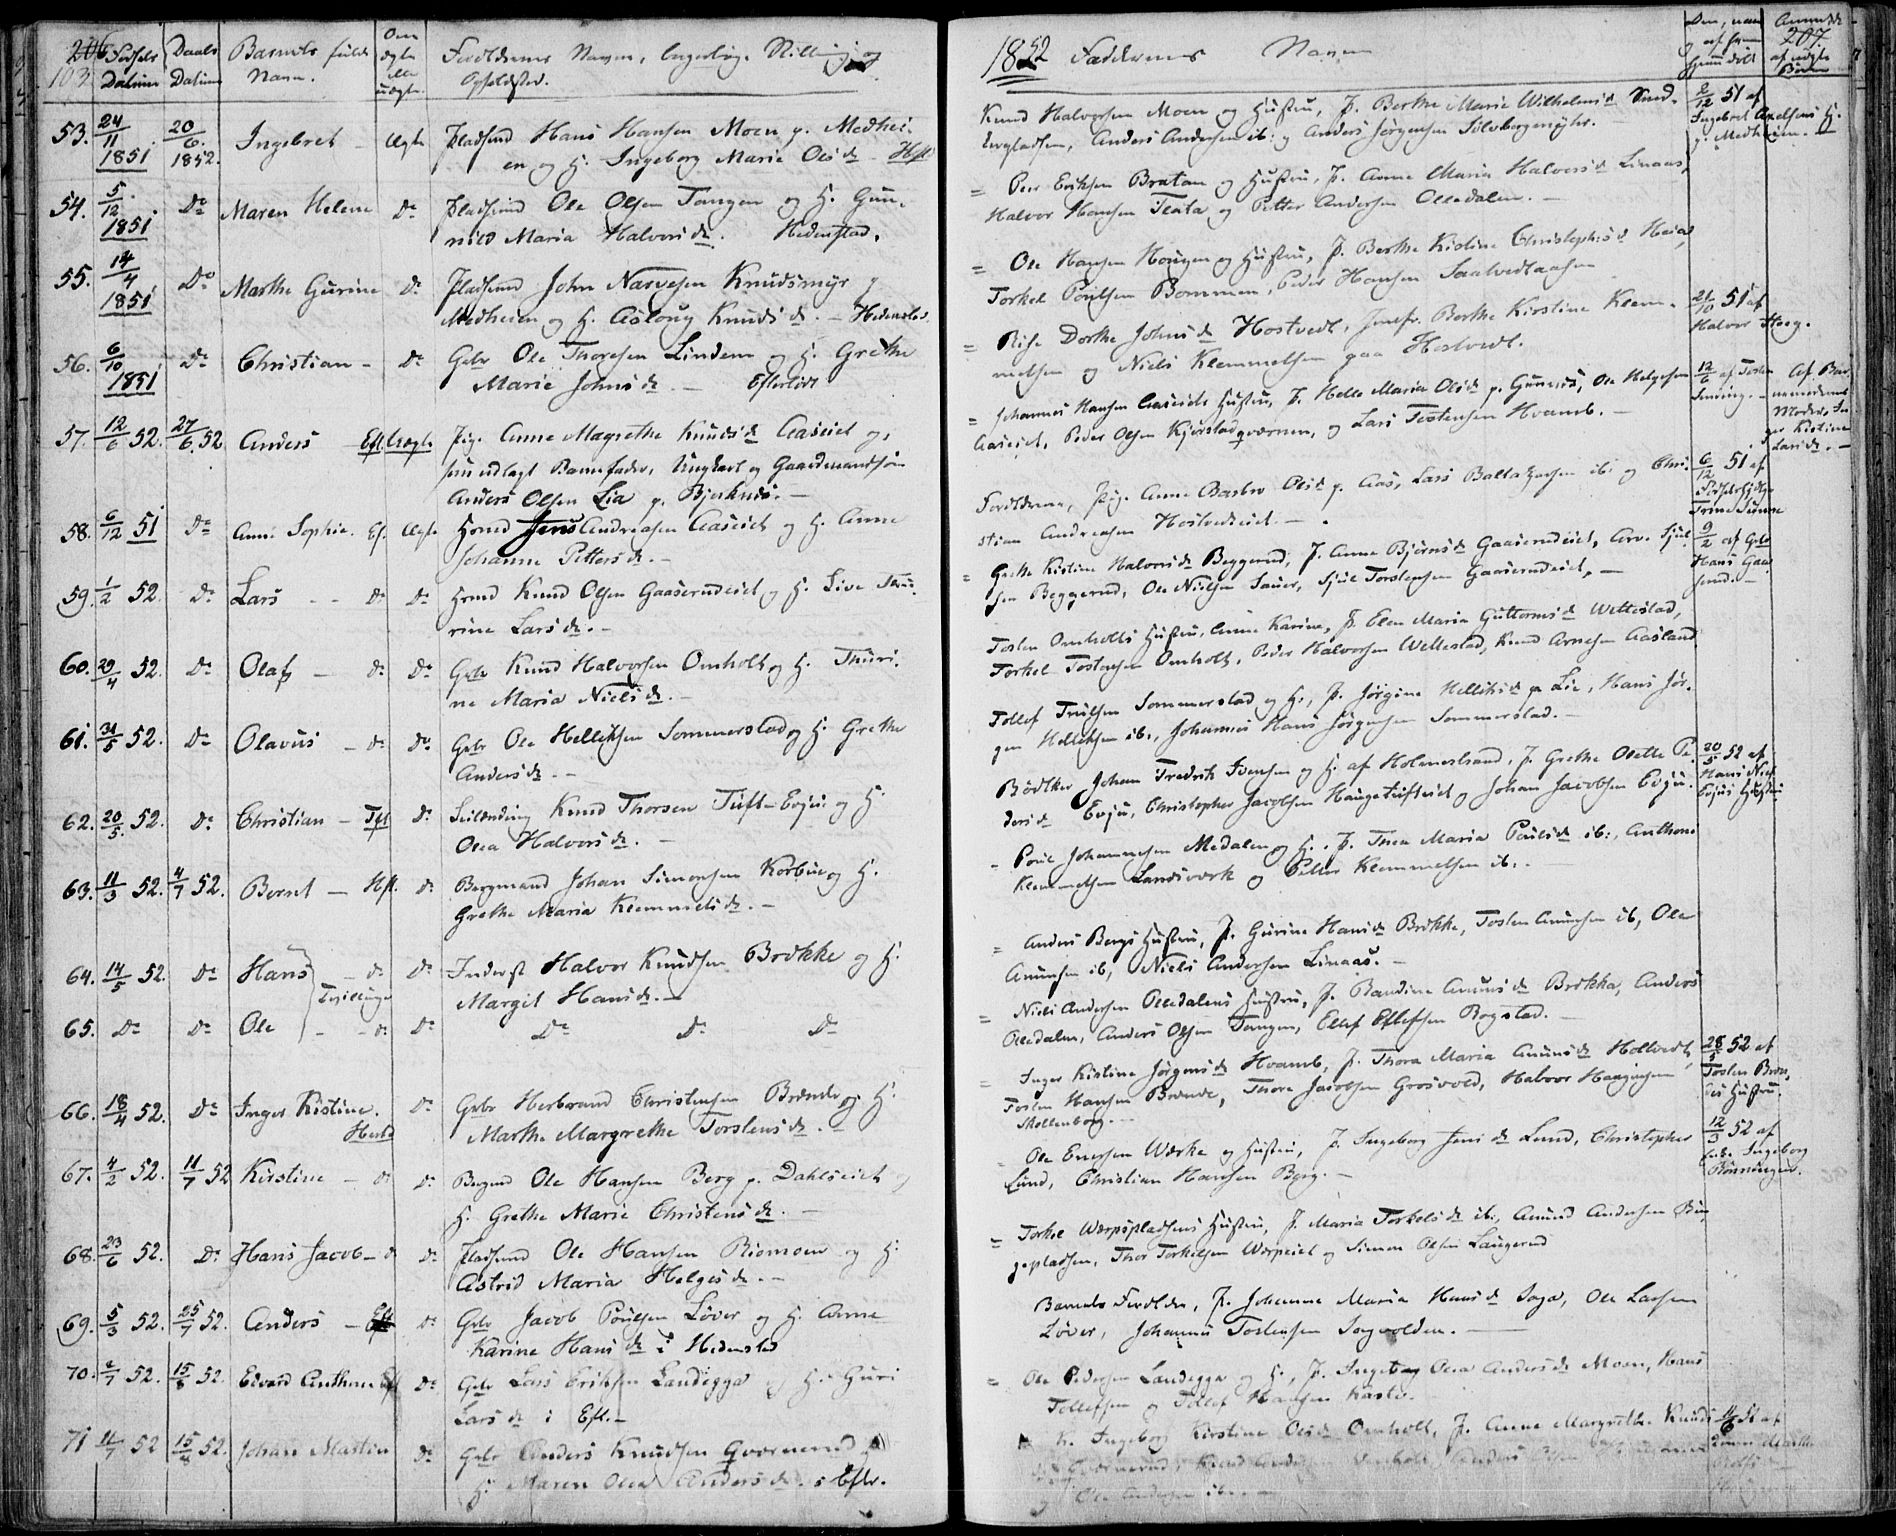 206
103
Fødsels Datum
Daabs Datum
Barnets fulde Navn.
Om ægte eller uægte.
Forældrenes Navn, borgerlige Stilling og Opholdsted.
53. 24/11 1851. 20/6 1852. Ingebret - Ægte Pladsmd Hans Hansen Moen p. Medhei-
en og H. Ingeborg Marie Olsdr - Hfl.
54. 5/12 1851 Do Maren Helene Do Pladsmd Ole Olsen Tangen og H. Gun-
nild Maria Halvorsdr. Hedenstad.
55. 14/4 1851 Do Marthe Gurine Do Pladsmd John Narvesen Knudsmyr p
Medheien og H. Asloug Knudsdr. - Hedensted.
56. 6/10 1851 Do Christian - Do Gbr Ole Thoresen Lindem og H. Grethe
Marie Johnsdr. - Eftelødt
57. 12/6 52. 27/6 52 Anders - Efl. Uægte Pige Anne Magrethe Knudsdr Aaseiet og,
som udlagt Barnefader, Ungkarl og Gaardmandssøn
Anders Olsen Lia p. Bjerknes. -
58. 6/12 51 Do Anne Sophie. Ef. Ægte Hrmd Jens Andreasen Aaseiet og H. Anne
Johanne Pettersdr. -
59. 1/2 52. Do Lars - - Do Do Hrmd Knud Olsen Gaaserudeiet og H. Live Thu-
rine Larsdr. -
60. 29/4 52. Do Olaf - Do Do Gbr Knud Halvorsen Omholt og H. Thuri-
ne Maria Nielsdr. -
61. 31/5 52. Do Olavus - Do Do Gbr Ole Helliksen Sommerstad og H. Grethe
Andersdr. -
62. 20/5 52. Do Christian - Do Knud Thorsen Tuft-Evju: og H.
Olea Halvorsdr. -
63. 11/3 52. 4/7 52. Bernt - Hfl. Do Bergmand Johan Simonsen Korbue og H.
Grethe Maria Klemmetsdr. -
64. 14/5 52. Do Hans - Do Do Inderst Halvor Knudsen Brekke og H.
Tvillinger Margit Hansdr. -
65. Do Do Ole - - Do Do Do Do Do
66. 18/4 52. Do Inger Kistine. Do Gbr Herbrand Christensen Brænde og H.
Hedsd Marthe Margrethe Torstensdr. -
67. 4/2 52. 11/7 52 Kirstine - Do Do Bergmd Ole Hansen Berg p. Dahlseiet og
H. Grethe Marie Christensdr. -
68. 23/6 52. Do Hans Jacob - Do Do Pladsmd Ole Hansen Biomoen og H.
Astrid Maria Helgesdr. -
69. 5/3 52. 25/7 52. Anders - Efl Do Gbr Jacob Poulsen Løver og H. Anne
Karine Hansdr i Hedensted
70. 52. 15/8 52. Edvard Anthon Efl Do Gbr Lars Eriksen Landigga og H. Guri
Larsdr i Efl. -
71 11/7 52 15/8 52. Johan Martin Do Gbr Anders Knudsen Qværnerud
H. Maren Olea Andersdr. i Eflr.
1852 Faddernes Navn
207.
Knud Halvorsen Moen og Hustru, P. Berthe Marie Wilhelmsdr
Anders Andersen ib: og Anders Jørgensen Sølvbergmyhr.
2/12 51 af
Ingebret Axelsens H.
p. Medheien.
= Peer Eriksen Bratan og Hustru, P. Anne Maria Halvorsdr Linaas,
Halvor Hansen Teata og Petter Andersen Olledalen. -
= Ole Hansen Hougen og Hustru, P. Berthe Kistine Christophersdr Heias,
Torkel Poulsen Bommen, Peder Hansen
= Dorthe Johnsdr Hostvedt, Jomfr. Berthe Kirstine Klem-
metsen og Niels Klemmetsen paa Hostvedt.
21/10 51 af
Halvor Hoeg.
= Johannes Hansen Aaseiets Hustru, P. Helle Maria Olsdr p. Gunnes, Ole Helgesen
Aaseiet, Peder Olsen Kjørstadqværnen, og Lars Tostensen Hvamb. -
12/6 af Tosten
Af Bar-
Moders
Kistine
Larsdr. -
Forældrene, Pige Anne Barbro Olsdr p. Aas, Lars Baltazersen ib: og Chri-
stian Andreasen Hostvedeiet. -
6/12 51 af
= Grethe Kistine Halvorsdr Beggerud, P. Anne Bjørnsdr Gaaserudeiet, Arv. Sjul-
sen Beggerud, Ole Nielsen Sauer, Sjul Torstensen Gaaserudeiet. -
9/2 af Gbr
Hans Gaa-
serud. -
Tosten Omholts Hustru, Anne Karine, P. Elen Maria Guttormsdr Wettestad,
Torkel Tostensen Omholt, Peder Halvorsen Wettestad, Knud Arnesen Aasland
Tollef Trulsen Sommerstad og H., P. Jørgine Helliksdr p. Lie, Hans Jør-
gen Helliksen ib., Johannes Hans Jørgensen Sommerstad. -
Bødker Johan Fredrik Svensen og H. af Holmestrand, P. Grethe Olette Pe-
dersdr Evju, Christopher Jacobsen Haugetufteiet og Johan Jacobsen Evju.
20/5 52 af
Hans
Evjus Hustru
- Poul Johannesen Medalen og H., P. Thea Maria Poulsdr ib:, Anthon
Klemmetsen Landsværk og Petter Klemmetsen ib:. -
= Anders Bergs Hustru, P. Gurine Hansdr Brekke, Tosten Amunsen ib, Ole
Amunsen ib, Niels Andersen Linaas. -
= Niels Andersen Olledalens Hustru, P. Randine Amunsdr Brekke, Anders
Olledalen, Anders Olsen Tangen, Ellef Ellefsen Rogstad. -
= Inger Kistine Jørgensdr Hvamb, P. Thora Maria Amunsdr Holtvedt,
Tosten Hansen Brænde, Thore Jacobsen Grosvold, Halvor Haagensen
Mollenborg. -
28/5 52 af
Tosten Bræn-
des Hustru.
- Ole Evensen Wærke og Hustru, P. Ingeborg Jensdr Lund, Christopher
Lund, Christian Hansen Berg. -
12/3 52 af
Ingeborg
= Torkel Wærpspladsens Hustru, P. Maria Torkelsdr ib:, Amund Andersen
Thor Torkelsen Wærpeiet og Simon Olsen Laugerud
Barnets Forældre, P. Johanne Maria Hansdr Saga, Ole Larsen
Løver, Johannes Tostensen Sagvolden. -
= Ole Pedersen Landigga og H., P. Ingeborg Olea Andersdr Moen, Hans
Tollefsen og Tollef Hansen
K. Ingeborg Kirstine Olsdr Omholt, P. Anne Margrethe Knuds
51 af
Qværnerud, Knud
Ole Andersen ib. -